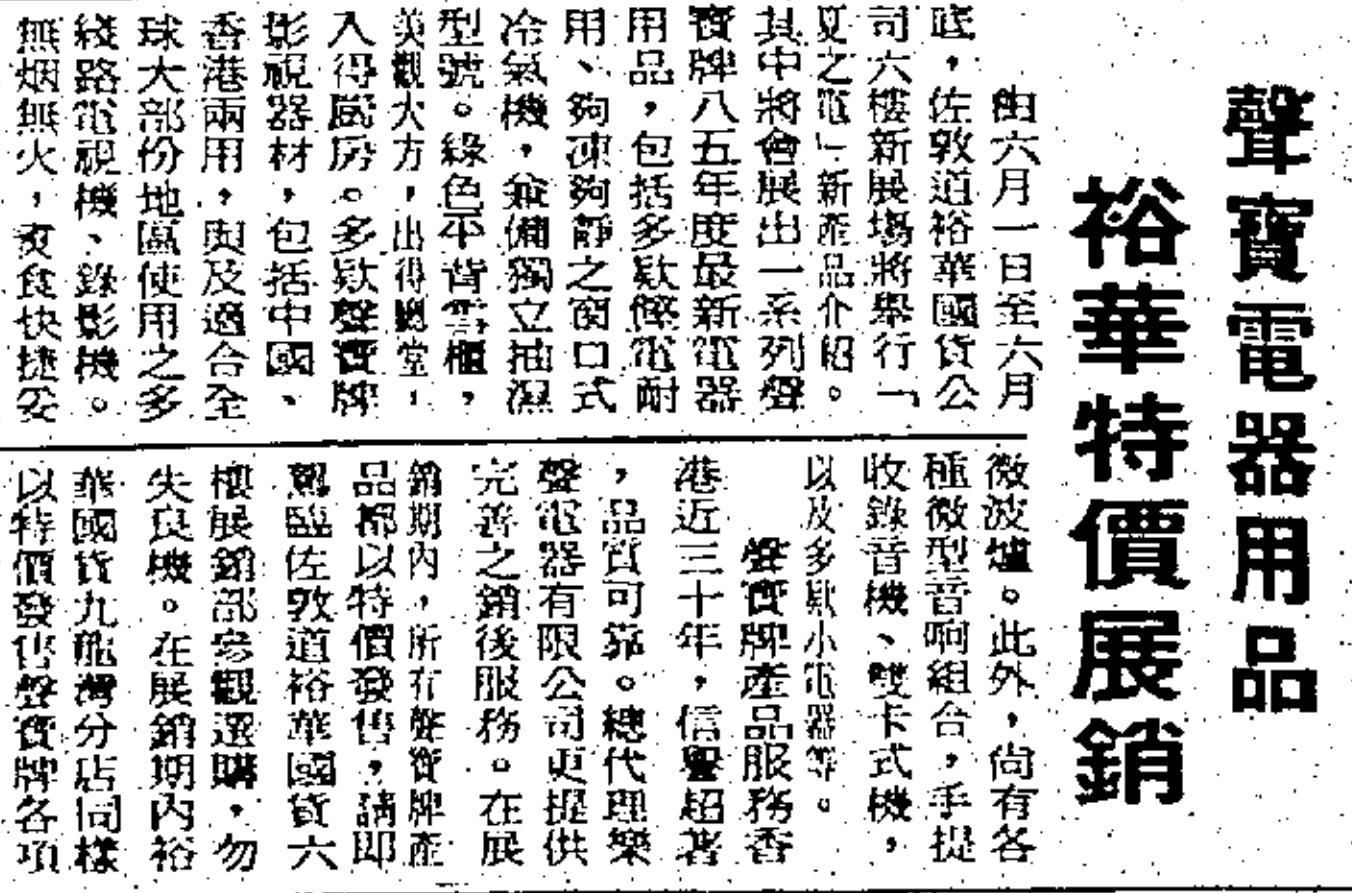 聲寶電器用品
裕華特價展銷
由六月一日至六月
底，佐敦道裕華國貨公
司六樓新展場將舉行「
夏之電」新產品介紹。
其中將會展出一系列聲
寶牌八五年度最新電器
用品，包括多欵慳電耐
用、夠凍夠靜之窗口式
冷氣機，兼備獨立抽濕
型號。綠色平背雪櫃，
美觀大方，出得廳堂，
入得厨房。多欵聲寶牌
影視器材，包括中國、
香港兩用，與及適合全
球大部份地區使用之多
綫路電視機、錄影機。
無烟無火，煑食快捷妥
微波爐。此外，尙有各
種微型音响組合，手提
收錄音機、雙卡式機，
以及多欵小電器等。
聲寶牌產品服務香
港近三十年，信譽超著
，品質可靠。總代理樂
聲電器有限公司更提供
完善之銷後服務。在展
銷期內，所有聲寶牌產
品都以特價發售，請即
駕臨佐敦道裕華國貨六
樓展銷部參觀選購，勿
失良機。在展銷期內裕
華國貨九龍灣分店同樣
以特價發售聲寶牌各項